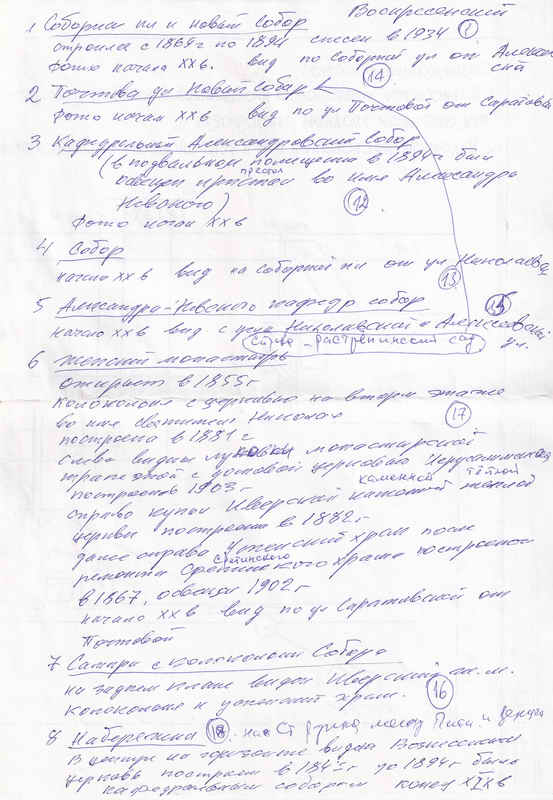 Воскресенский
1 Соборная пл и новый собор ①
строился с 1869г по 1894 снесен в 1934
фото начала ХХ в. вид по Соборной ул от Алексеевской
14
2 Почтовая ул Новый Собор
фото начала ХХ в вид по ул Почтовой от Саратовской
3 Кафедральный Александровский Собор
(в подвальном помещении в 1894г был
освящен престол во имя Александра
Невского) 12
фото начала ХХ в
4 Собор
начало ХХ в вид на соборной пл от ул Николаевской
13
5 Александро-Невского кафедр собор
начало ХХ в вид с угла Николаевской и Алексеевской ул.
справа
6 Женский монастырь
открыт в 1855г
колокольня с церковью на втором этаже
во имя святителя Николая 17
построена в 1881 г
слева видны луковки монастырской
трапезной с домовой церковью Иерусалимской
построена 1903г каменной теплой
справа купол Иверской
церкви построена в 1882г
далее справа Успенский храм после
ремонта Сретенского храма построенного
в 1867, освящен 1902г
начало ХХ в вид по ул Саратовской от
Почтовой
7 Самара с колокольни Собора
на заднем плане виден Иверский ж. м.
колокольня и успенский храм. 16
8 Набережная 18
В центре на горизонте видна Вознесенская
церковь построена в 184 до 1894г была
кафедральным собором конец XIX в